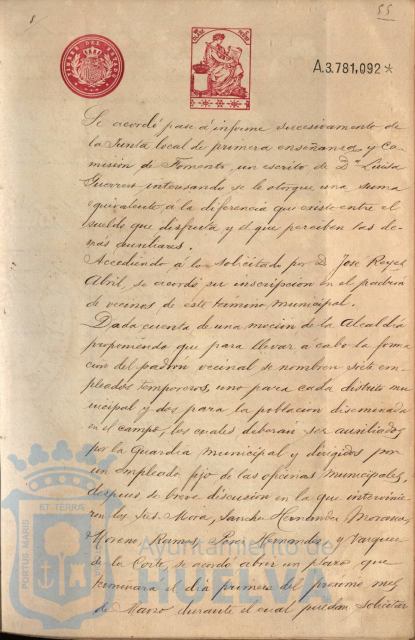 55
TIMBRE DEL ESTADO
A.3.781,092*
Se acordó pase á informe sucesivamente de
la Junta local de primera enseñanza y Co-
misión de Fomento, un escrito de Dª Luisa
Guerrero interesando se le otorgue una suma
equivalente á la diferencia que existe entre el
sueldo que disfruta y el que perciben las de-
más auxiliares.
Accediendo á lo solicitado por D. José Reyes
Abril, se acordó su inscripción en el padrón
de vecinos de este término municipal.
Dada cuenta de una moción de la Alcaldía
proponiendo que para llevar á cabo la forma-
ción del padrón vecinal se nombren siete em-
pleados temporeros, uno para cada distrito mu-
nicipal y dos para la población diseminada
en el campo, los cuales deberán ser auxiliados
por la Guardia Municipal y dirigidos por
un empleado fijo de las oficinas municipales,
después de breve discusión en la que intervinie-
ron los Sres. Mora, Sanchez Hernandez, Morano,
Moreno, Ramos, Perez Hernandez y Vazquez
de la Corte, se acordó abrir un plazo que
terminara el día primero del próximo mes
de Marzo durante el cual puedan solicitar
PORTUS MARIS
ET TERRÆ
Ayuntamiento de
HUELVA